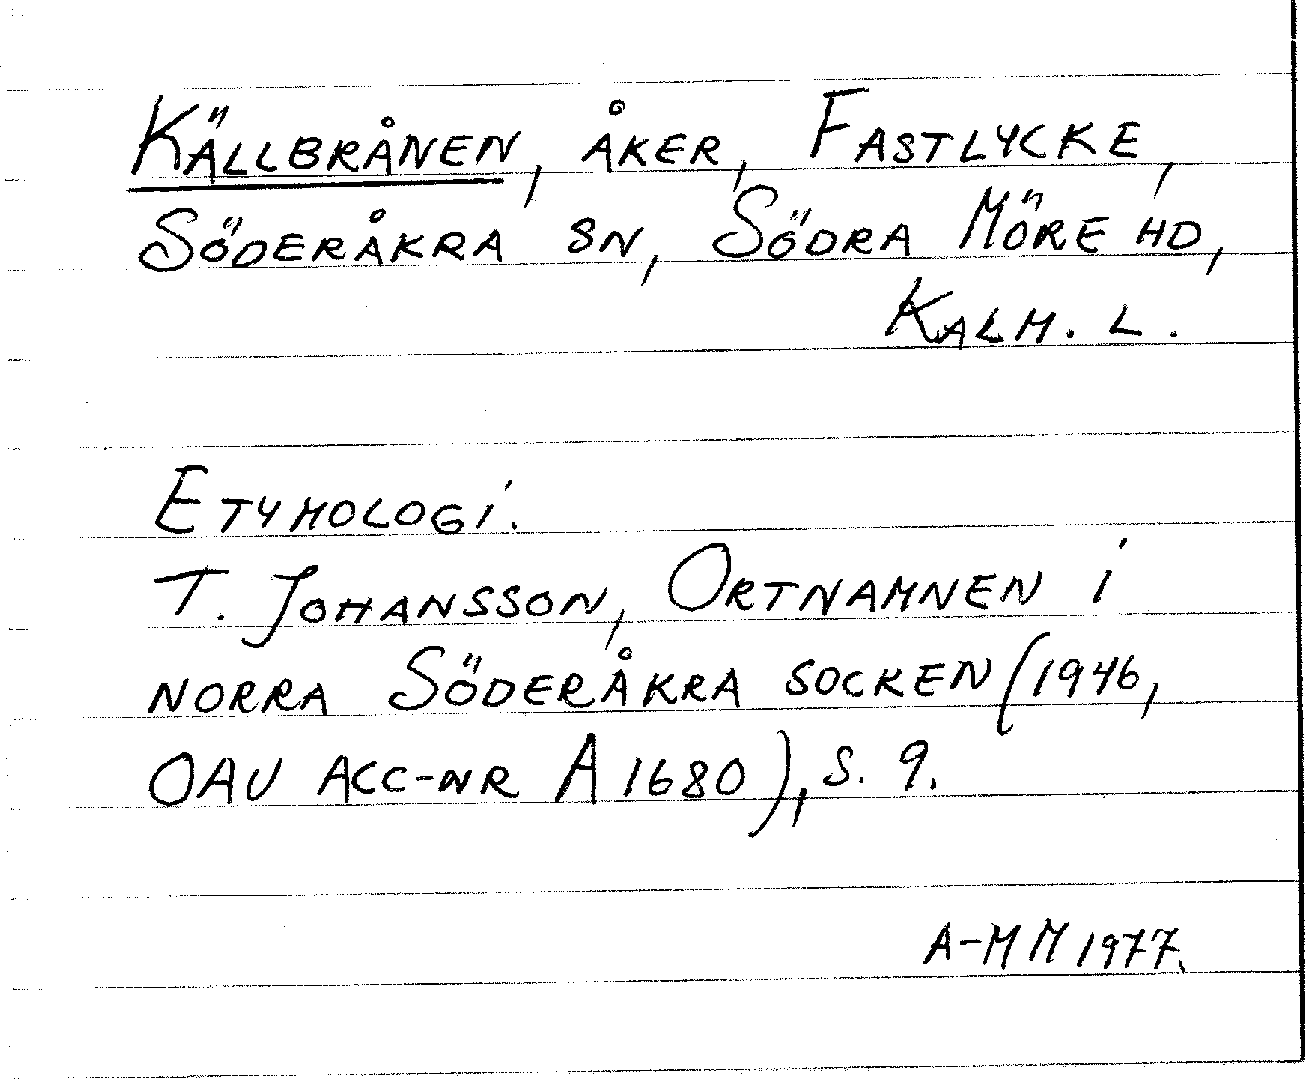 KÄLLBRÅNEN, ÅKER, FASTLYCKE,
SÖDERÅKRA SN, SÖDRA MÖRE HD,
KALM. L.
ETYMOLOGI.
T. JOHANSSON, ORTNAMNEN I
NORRA SÖDERÅKRA SOCKEN (1946,
OAU ACC-NR A 1680), S. 9.
A-MM 1977.